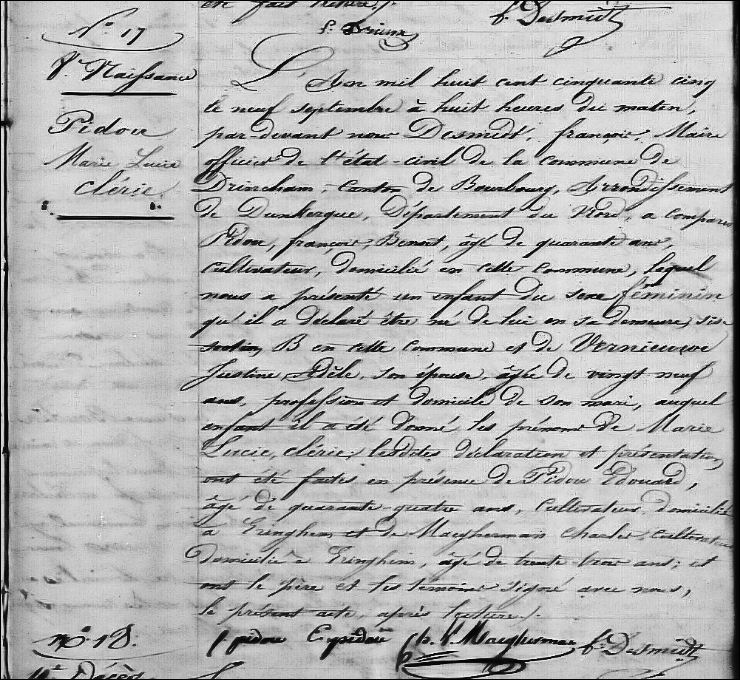 en fait lecture.
f. Desmidt
N° 17
Naissance
Pidou
Marie Lucie
Clérie
L'An mil huit cent cinquante cinq
le neuf septembre à huit heures du maten,
par-devant nous Desmidt, françois, Maire
officier de l'état-civil de la commune de
Drincham, Canton de Bourbourg, Arrondissement
de Dunkerque, Département du Nord, a comparu
Pidou, françois, Benoit, âgé de quarante ans,
cultivateur, domicilié en cette commune, lequel
nous a présenté un enfant du sexe féminin
qu'il a déclaré être né de lui en sa demeure, sise
section, B en cette commune et de Vernieuwe
Justine, Adèle, son épouse, âgée de vingt neuf
ans, profession et domicile de son mari, auquel
enfant il a été donné les prénoms de Marie
Lucie, clérie; lesdites déclaration et présentation,
ont été faites en présence de Pidou Edouard,
âgé de quarante-quatre ans, cultivateur domicilié
à Eringhem et de Maegherman Charles, cultivateur
domicilié à Eringhem, âgé de trente trois ans; et
ont le père et les témoins signé avec nous,
le présent acte, après lecture.
n° 18.
f pidou E pidou Maegherman f. Desmidt
Décès